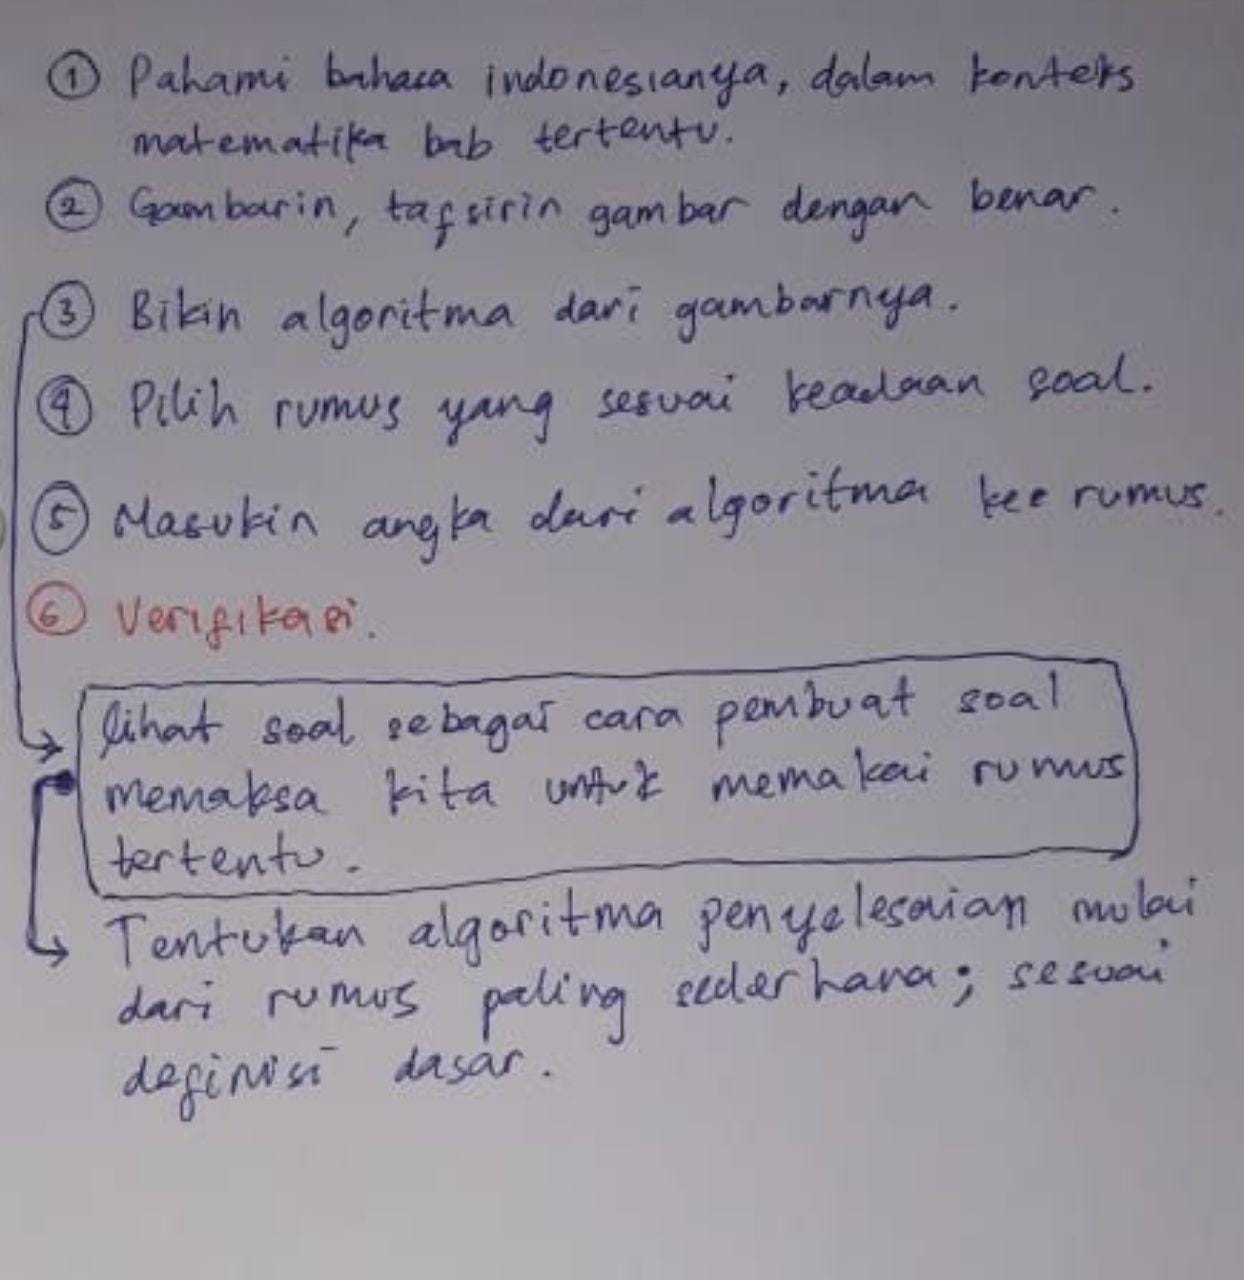 ① Pahami bahasa indonesianya, dalam konteks
matematika bab tertentu.
② Gambarin, tafsirin gambar dengan benar.
③ Bikin algoritma dari gambarnya.
④ Pilih rumus yang sesuai keadaan soal.
⑤ Masukin angka dari algoritma kee rumus.
⑥ Verifikasi.
lihat soal sebagai cara pembuat soal
memaksa kita untuk memakai rumus
tertentu.
Tentukan algoritma penyelesaian mulai
dari rumus paling sederhana; sesuai
definisi dasar.